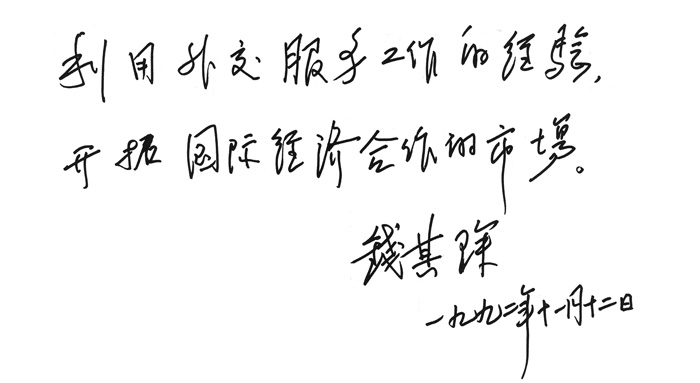 利用外交服务工作的经验,
开拓国际经济合作的市场。
錢其琛
一九九二年十一月十二日